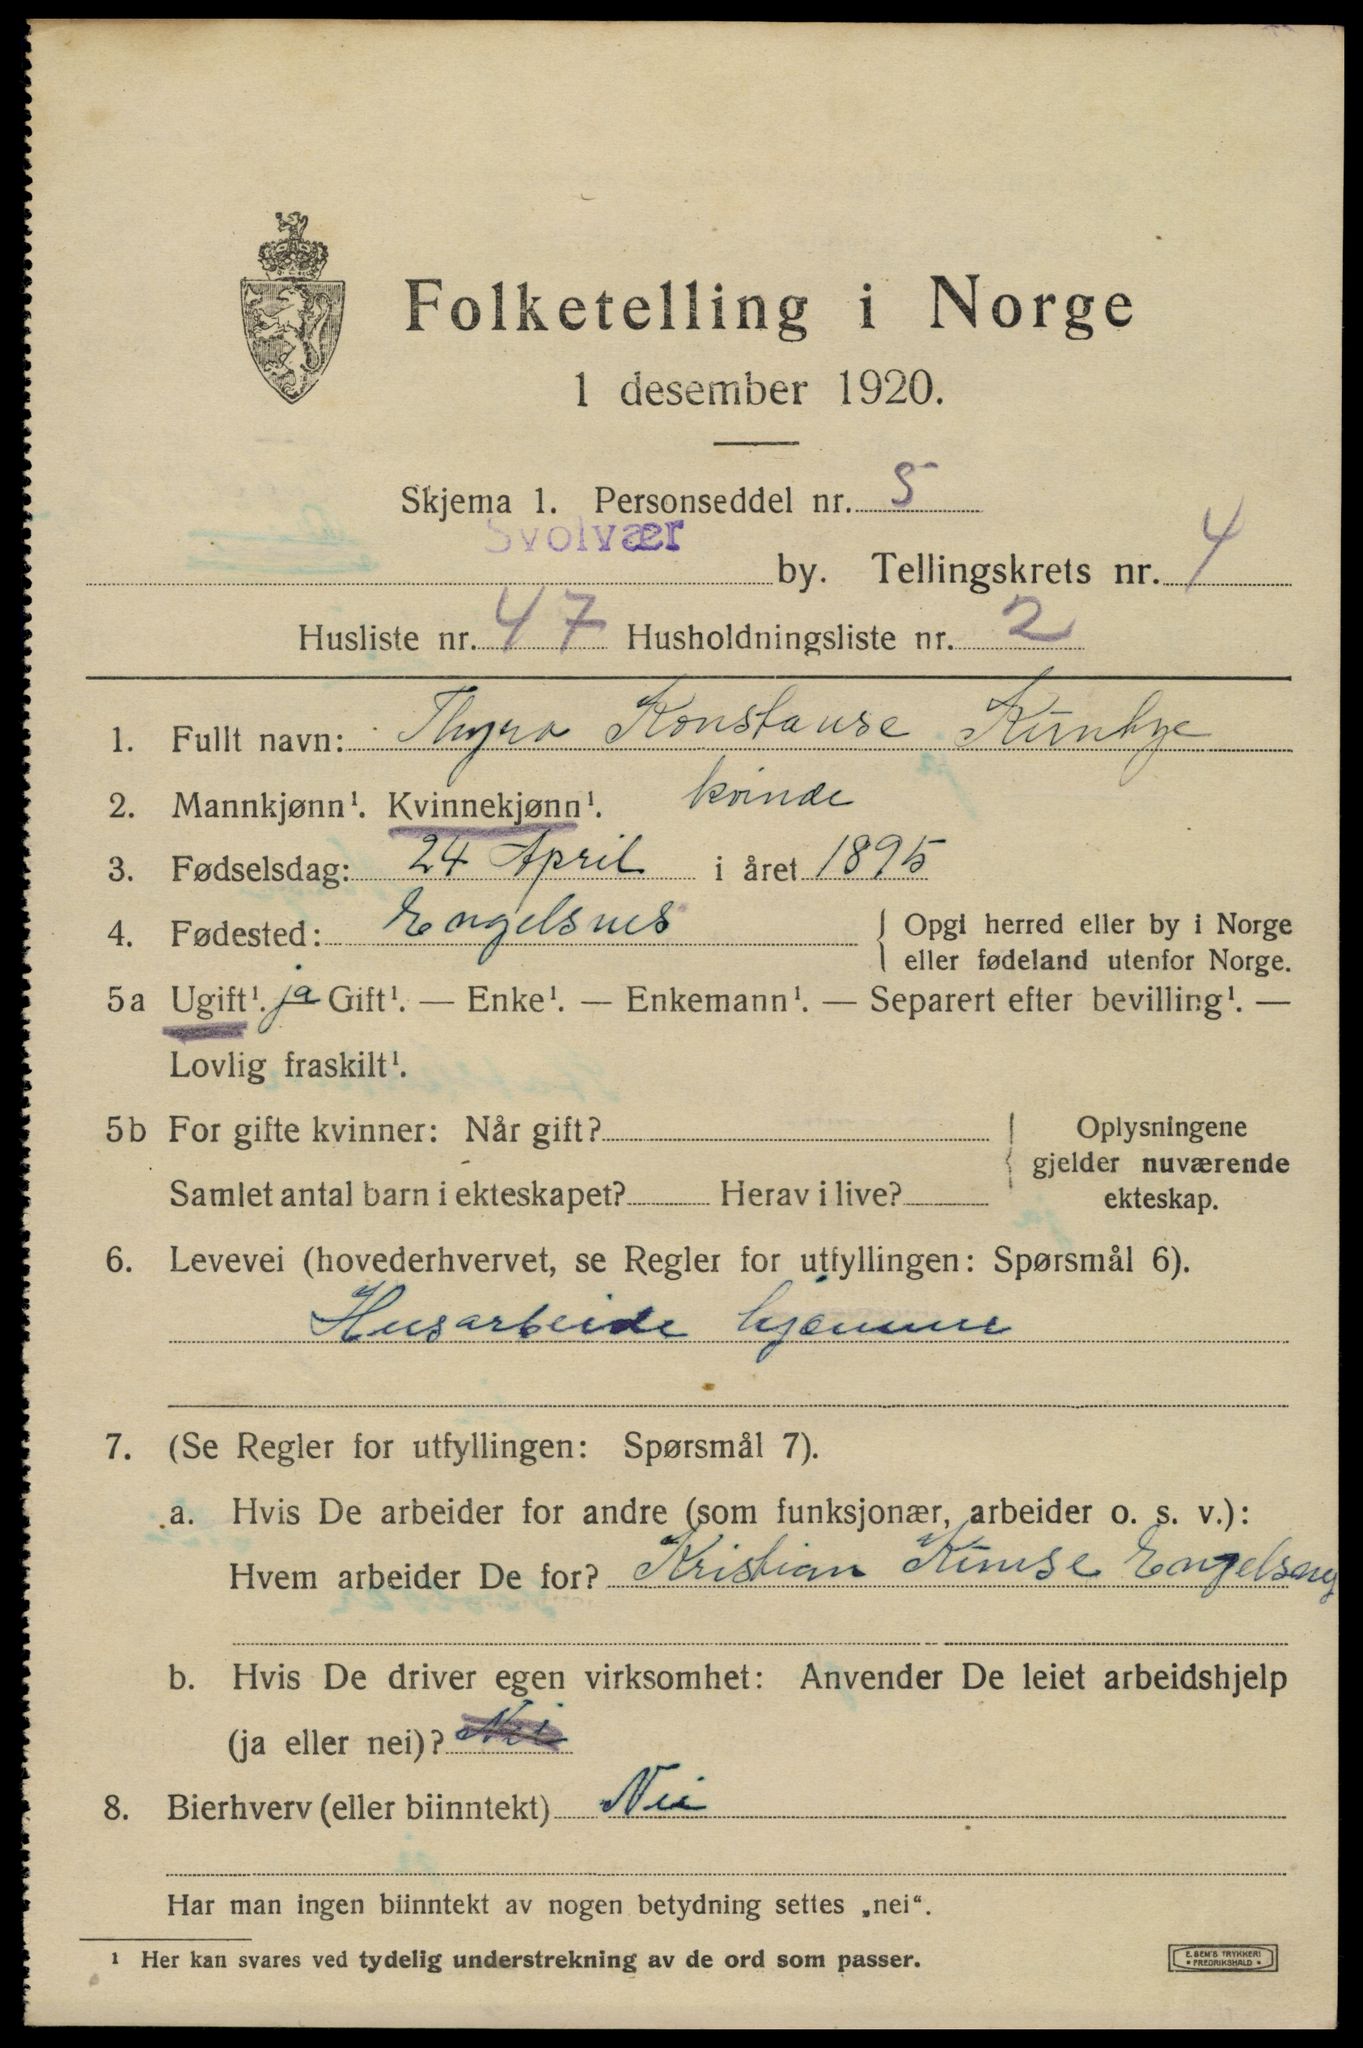 Folketelling i Norge
1 desember 1920.
Skjema 1. Personseddel nr. 5
Svolvær by. Tellingskrets nr. 4
Husliste nr. 47 Husholdningsliste nr. 2
1. Fullt navn: Thyra Konstanse
2. Mannkjønn¹. Kvinnekjønn¹. kvinde
3. Fødselsdag: 24 April i året 1895
4. Fødested: Engelsnes { Opgi herred eller by i Norge
eller fødeland utenfor Norge.
5a Ugift¹. ja Gift¹. — Enke¹. — Enkemann¹. — Separert efter bevilling¹. —
Lovlig fraskilt¹.
5b For gifte kvinner: Når gift? { Oplysningene
gjelder nuværende
Samlet antal barn i ekteskapet? Herav i live? ekteskap.
6. Levevei (hovederhvervet, se Regler for utfyllingen: Spørsmål 6).
Husarbeide hjemme
7. (Se Regler for utfyllingen: Spørsmål 7).
a. Hvis De arbeider for andre (som funksjonær, arbeider o. s. v.):
Hvem arbeider De for? Kristian
b. Hvis De driver egen virksomhet: Anvender De leiet arbeidshjelp
(ja eller nei)? Nei
8. Bierhverv (eller biinntekt) Nei
Har man ingen biinntekt av nogen betydning settes „nei“.
¹ Her kan svares ved tydelig understrekning av de ord som passer.
E. SEM'S TRYKKERI
FREDRIKSHALD